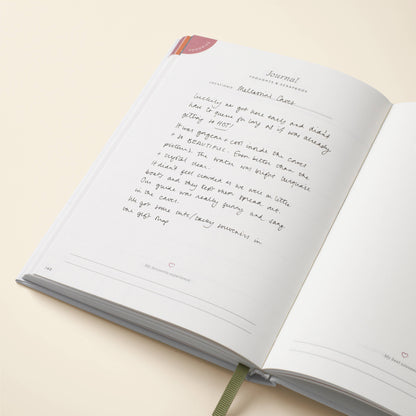 Journal
THOUGHTS & SCRAPBOOK
LOCATION:
Luckily we got here early and didn't
have to queue for long as it was already
getting so HOT!
It was gorgeous + cool inside the caves
+ so BEAUTIFUL. Even better than the
pictures. The water was bright turquoise
+ crystal clear.
It didn't feel crowded as we were in little
boats and they kept them spread out.
Our guide was really funny and sang
in the caves.
We got some cute/tacky souvenirs in
the gift shop
My favourite experience
142
My best